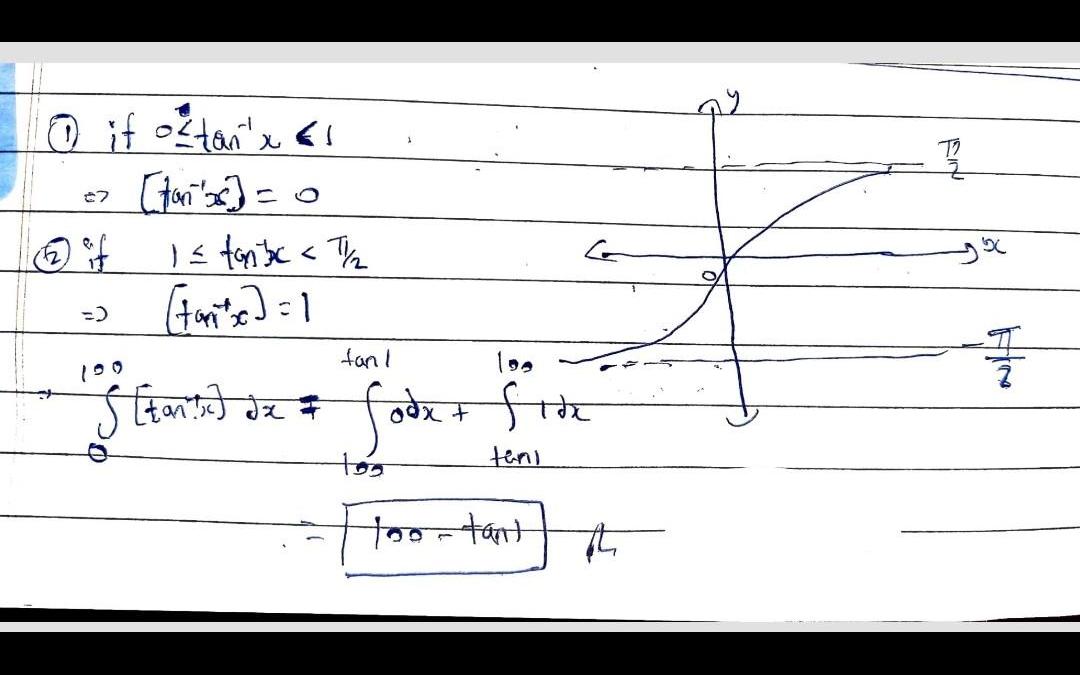 ① if 0 ≤ tan⁻¹x < 1
=> [tan⁻¹x] = 0
② if 1 ≤ tan⁻¹x < π/2
=> [tan⁻¹x] = 1
∫₀¹⁰⁰ [tan⁻¹x] dx = ∫₁₀₀ᵗᵃⁿ¹ 0dx + ∫ₜₐₙ₁¹⁰⁰ 1dx
= 100 - tan1
y
π/2
x
0
-π/2